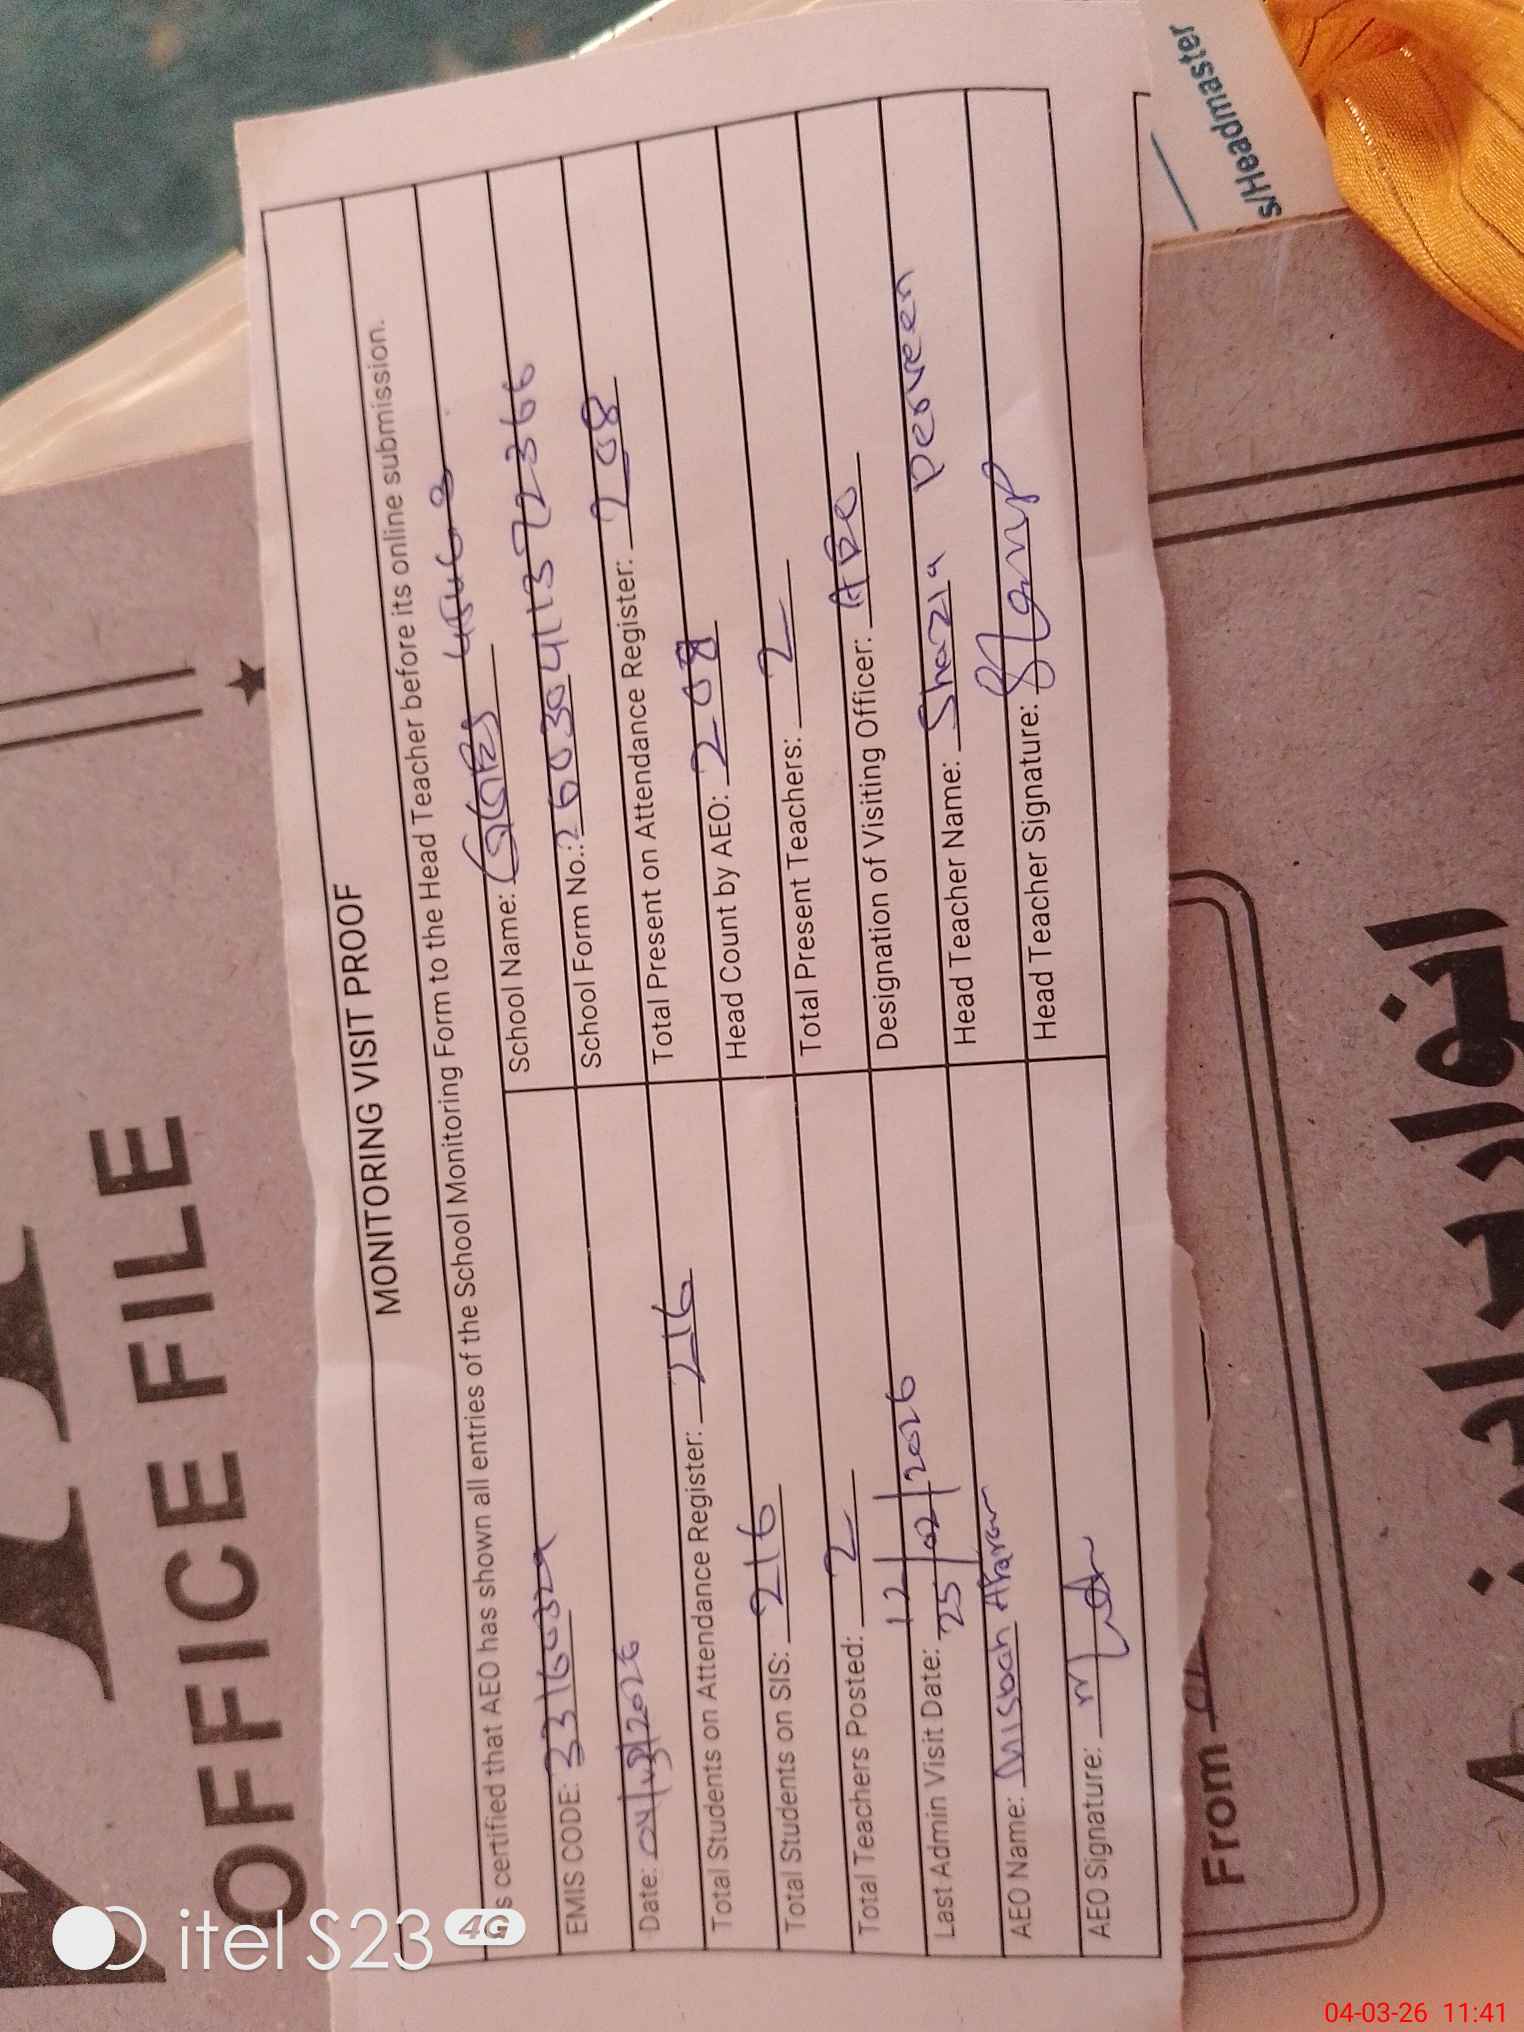 OFFICE FILE
MONITORING VISIT PROOF
s certified that AEO has shown all entries of the School Monitoring Form to the Head Teacher before its online submission.
EMIS CODE: 33160329
School Name: GGPS
Date: 04/03/2026
School Form No.: 26030411372366
Total Students on Attendance Register: 216
Total Present on Attendance Register: 208
Total Students on SIS: 216
Head Count by AEO: 208
Total Teachers Posted: 2
Total Present Teachers: 2
Last Admin Visit Date: 25/02/2026
12
Designation of Visiting Officer: AEO
AEO Name: Misbah Akram
Head Teacher Name: Shazia Perveen
AEO Signature:
Head Teacher Signature:
s/Headmaster
From
itel S23 4G
04-03-26 11:41